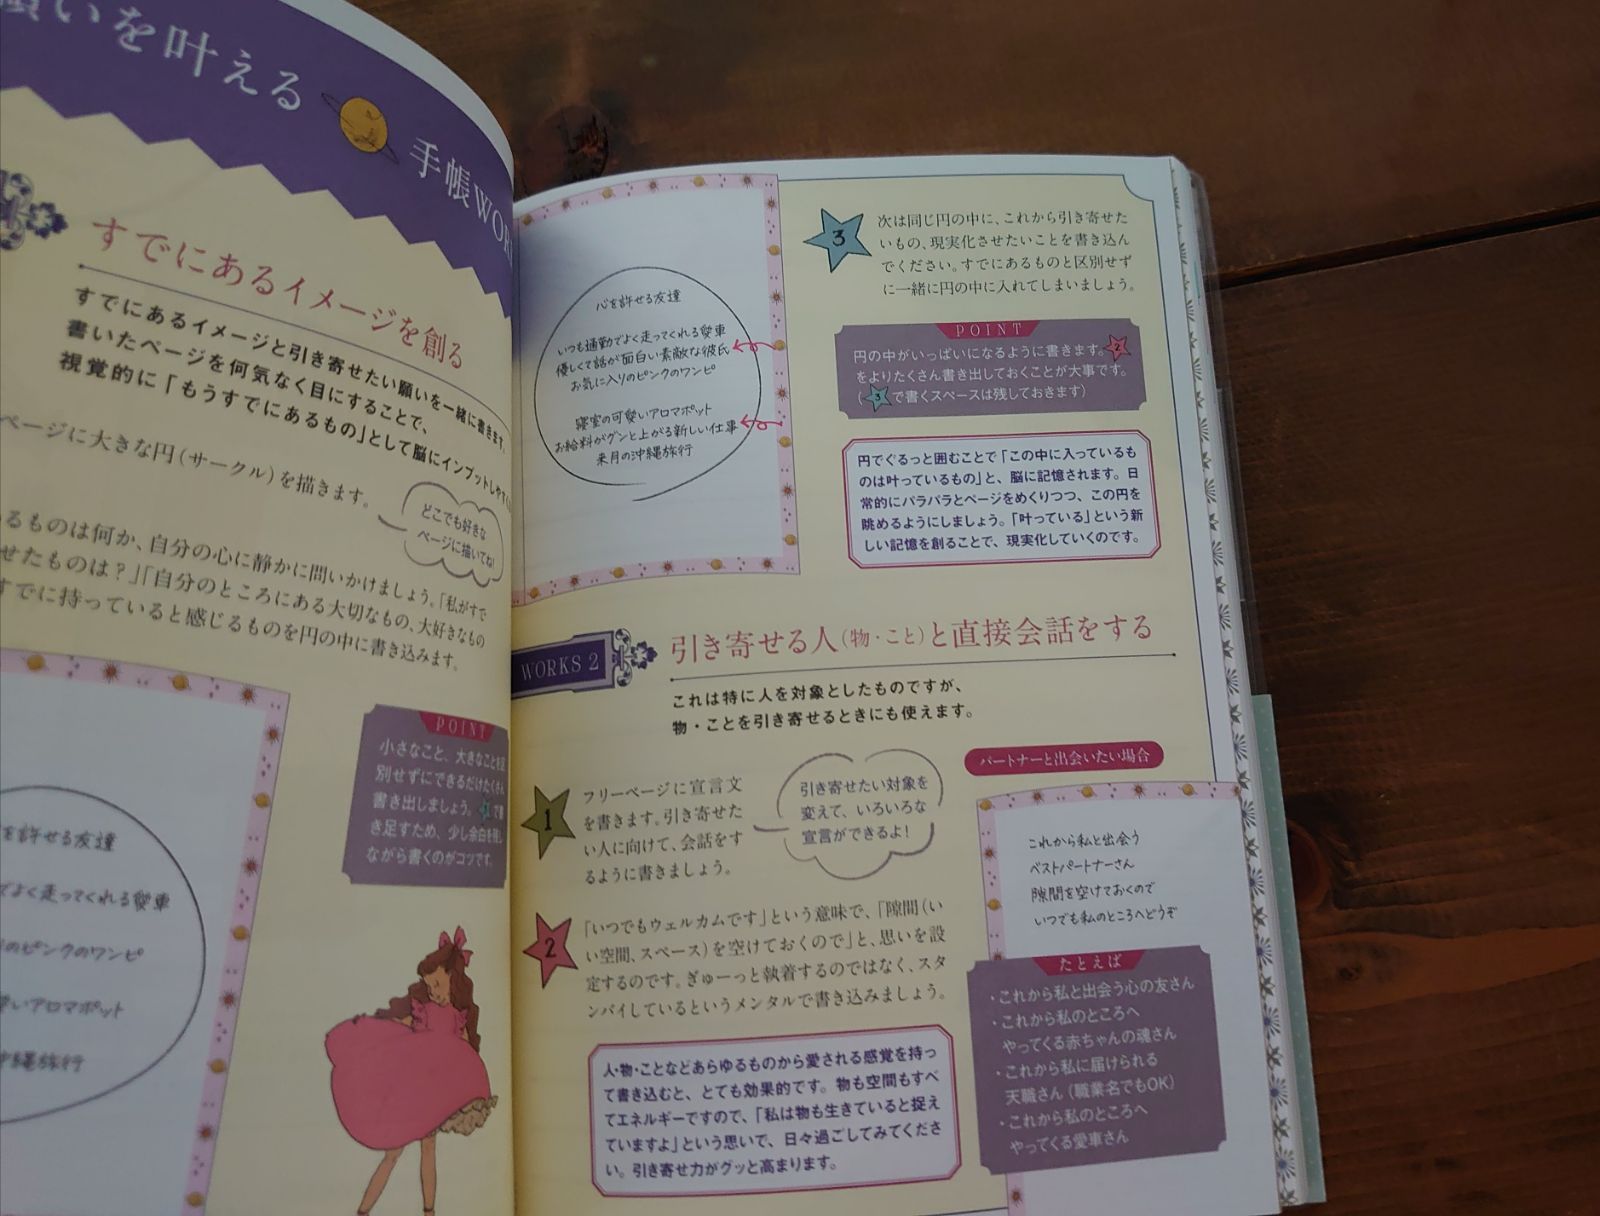 願いを叶える
手帳WOR
すでにあるイメージを創る
すでにあるイメージと引き寄せたい願いを一緒に書きます。
書いたページを何気なく目にすることで、
視覚的に「もうすでにあるもの」として脳にインプットしやすく
ページに大きな円（サークル）を描きます。
どこでも好きな
ページに描いてね!
るものは何か、自分の心に静かに問いかけましょう。「私がすで
せたものは？」「自分のところにある大切なもの、大好きなもの
すでに持っていると感じるものを円の中に書き込みます。
を許せる友達
でよく走ってくれる愛車
のピンクのワンピ
愛いアロマポット
沖縄旅行
POINT
小さなこと、大きなことを区
別せずにできるだけたくさん
書き出しましょう。3で書
き足すため、少し余白を残し
ながら書くのがコツです。
心を許せる友達
いつも通勤でよく走ってくれる愛車
優しくて話が面白い素敵な彼氏
お気に入りのピンクのワンピ
寝室の可愛いアロマポット
お給料がグンと上がる新しい仕事
来月の沖縄旅行
3
次は同じ円の中に、これから引き寄せた
いもの、現実化させたいことを書き込ん
でください。すでにあるものと区別せず
に一緒に円の中に入れてしまいましょう。
POINT
円の中がいっぱいになるように書きます。2
をよりたくさん書き出しておくことが大事です。
（3で書くスペースは残しておきます）
円でぐるっと囲むことで「この中に入っているも
のは叶っているもの」と、脳に記憶されます。日
常的にパラパラとページをめくりつつ、この円を
眺めるようにしましょう。「叶っている」という新
しい記憶を創ることで、現実化していくのです。
WORKS 2
引き寄せる人（物・こと）と直接会話をする
これは特に人を対象としたものですが、
物・ことを引き寄せるときにも使えます。
1
フリーページに宣言文
を書きます。引き寄せた
い人に向けて、会話をす
るように書きましょう。
引き寄せたい対象を
変えて、いろいろな
宣言ができるよ!
2
「いつでもウェルカムです」という意味で、「隙間（い
い空間、スペース）を空けておくので」と、思いを設
定するのです。ぎゅーっと執着するのではなく、スタ
ンバイしているというメンタルで書き込みましょう。
人・物・ことなどあらゆるものから愛される感覚を持っ
て書き込むと、とても効果的です。物も空間もすべ
てエネルギーですので、「私は物も生きていると捉え
ていますよ」という思いで、日々過ごしてみてくださ
い。引き寄せ力がグッと高まります。
パートナーと出会いたい場合
これから私と出会う
ベストパートナーさん
隙間を空けておくので
いつでも私のところへどうぞ
たとえば
・これから私と出会う心の友さん
・これから私のところへ
やってくる赤ちゃんの魂さん
・これから私に届けられる
天職さん（職業名でもOK）
・これから私のところへ
やってくる愛車さん